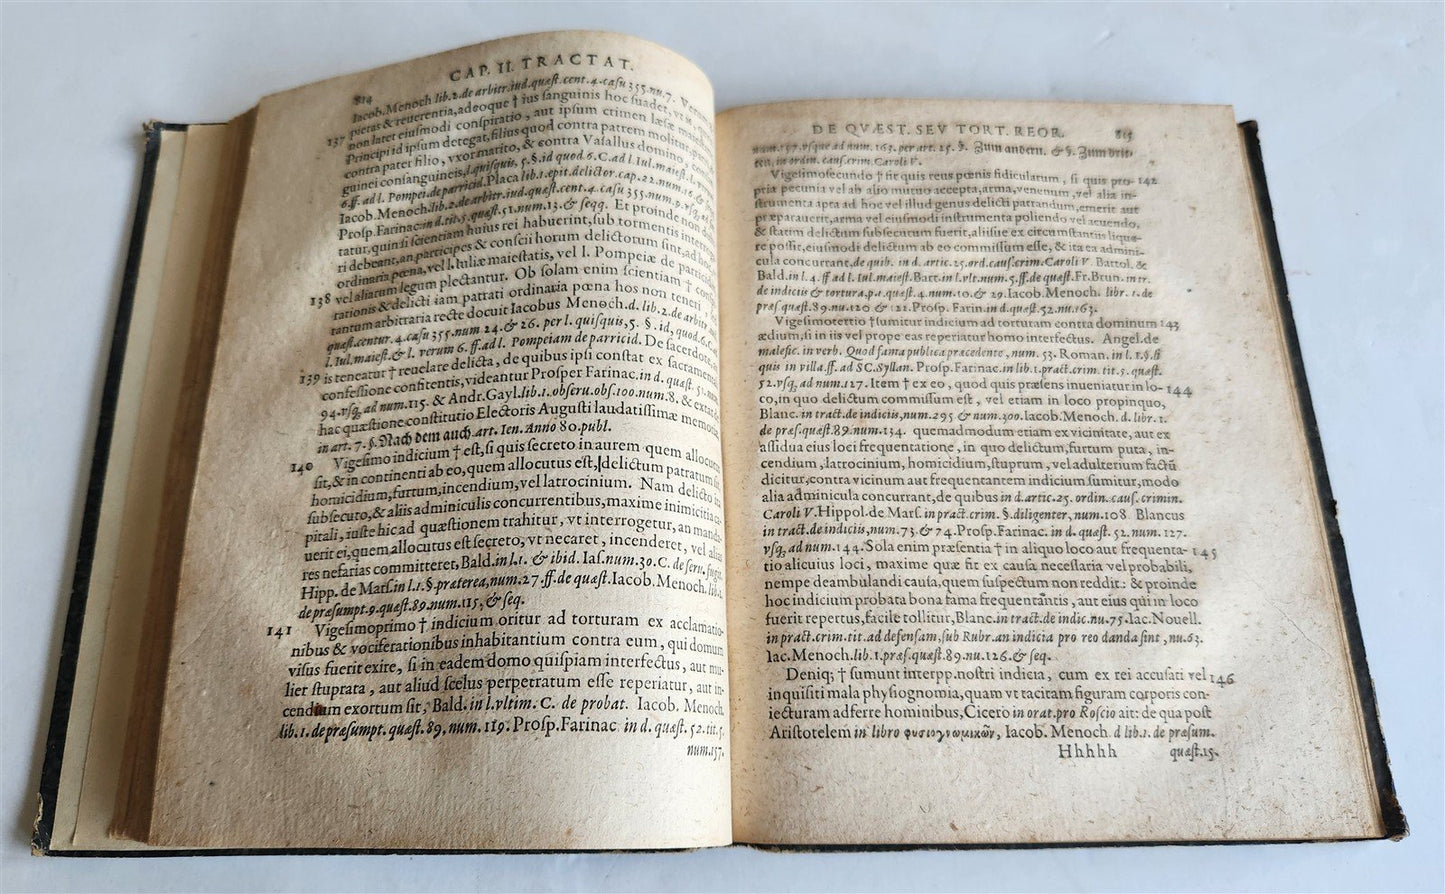 814 CAP. II. TRACTAT.
Iacob. Menoch lib. 2. de arbitr. iud. quæst. cent. 4. casu 355. nu. 7.
pietas & reuerentia, adeoque † ius sanguinis hoc suadet, vt
137 non latet eiusmodi conspiratio, aut ipsum crimen læsæ
Principi id ipsum detegat, filius quod contra patrem molitur,
contra pater filio, vxor marito, & contra Vasallus domino,
guinei consanguineis, l. quisquis, 5. §. id quod. 6. C. ad l. Iul. maiest.
6. ff. ad l. Pompei. de parricid. Placa lib. 1. epit. delictor. cap. 22. num. 16.
Iacob. Menoch. lib. 2. de arbitr. iud. quæst. cent. 4. casu 355. num. 9. vsq;
Prosp. Farinac. in d. tit. 5. quæst. 51. num. 13. & seqq. Et proinde non
tatur, quin si scientiam huius rei habuerint, sub tormentis
ri debeant, an participes & conscii horum delictorum sint, ad
ordinaria pœna, vel l. Iuliæ maiestatis, vel l. Pompeiæ de
138 vel aliarum legum plectantur. Ob solam enim scientiam †
rationis & delicti iam patrati ordinaria pœna hos non teneri
tantum arbitraria recte docuit Iacobus Menoch. d. lib. 2. de arbitr.
quæst. centur. 4. casu 355. num 24. & 26. per l. quisquis, 5. §. id, quod. 6. C.
l. Iul. maiest. & l. verum 6. ff. ad l. Pompeiam de parricid. De sacerdote,
139 is teneatur † reuelare delicta, de quibus ipsi constat ex
confessione confitentis, videantur Prosper Farinac. in d. quæst. 51. num.
94. vsq; ad num. 115. & Andr. Gayl. lib. 1. obseru. obs. 100. num. 8. & extat
hac quæstione constitutio Electoris Augusti laudatissimæ memoriæ,
in art. 7. §. Nach dem auch. art. Ien. Anno 80. publ.
140 Vigesimo indicium † est, si quis secreto in aurem quem allocutus
sit, & in continenti ab eo, quem allocutus est, delictum patratum sit,
homicidium, furtum, incendium, vel latrocinium. Nam delicto
subsecuto, & aliis adminiculis concurrentibus, maxime inimicitia
pitali, iuste hic ad quæstionem trahitur, vt interrogetur, an
uerit ei, quem allocutus est secreto, vt necaret, incenderet, vel
res nefarias committeret, Bald. in l. 1. & ibid. Ias. num. 30. C. de seru. fugit.
Hipp. de Mars. in l. 1. §. præterea, num. 27. ff. de quæst. Iacob. Menoch. lib. 1.
de præsumpt. 9. quæst. 89. num. 115, & seq.
141 Vigesimoprimo † indicium oritur ad torturam ex acclamatio-
nibus & vociferationibus inhabitantium contra eum, qui domum
visus fuerit exire, si in eadem domo quispiam interfectus, aut mu-
lier stuprata, aut aliud scelus perpetratum esse reperiatur, aut in-
cendium exortum sit, Bald. in l. vltim. C. de probat. Iacob. Menoch.
lib. 1. de præsumpt. quæst. 89, num. 119. Prosp. Farinac in d. quæst. 52. tit. 5.
num. 157.
DE QVÆST. SEV TORT. REOR. 815
num. 157. vsque ad num. 163. per art. 25. §. Zum andern. & §. Zum drit-
ten, in ordin. caus. crim. Caroli V.
Vigesimosecundo † fit quis reus pœnis fidicularum, si quis pro- 142
pria pecunia vel ab alio mutuo accepta, arma, venenum, vel alia in-
strumenta apta ad hoc vel illud genus delicti patrandum, emerit aut
præparauerit, arma vel eiusmodi instrumenta poliendo vel acuendo,
& statim delictum subsecutum fuerit, aliisue ex circumstantiis lique-
re possit, eiusmodi delictum ab eo commissum esse, & ita ea admini-
cula concurrant, de quib. in d. artic. 25. ord. caus. crim. Caroli V. Bartol. &
Bald. in l. 4. ff ad l. Iul. maiest. Bart. in l. vlt. num. 5. ff. de quæst. Fr. Brun. in tr.
de indiciis & tortura, p. 1. quæst. 4. num. 10. & 29. Iacob. Menoch. libr. 1. de
præs. quæst. 89. nu. 120 & 121. Prosp. Farin. in d. quæst. 52. nu. 163.
Vigesimotertio † sumitur indicium ad torturam contra dominum 143
ædium, si in iis vel prope eas reperiatur homo interfectus. Angel. de
malefic. in verb. Quod fama publica præcedente, num. 53. Roman. in l. 1. §. si
quis in villa. ff. ad SC. Syllan. Prosp. Farinac. in lib. 1. pract. crim. tit. 5. quæst.
52. vsq; ad num. 127. Item † ex eo, quod quis præsens inueniatur in lo- 144
co, in quo delictum commissum est, vel etiam in loco propinquo,
Blanc. in tract. de indiciis, num. 295 & num. 300. Iacob. Menoch. d. libr. 1.
de præs. quæst. 89. num. 134. quemadmodum etiam ex vicinitate, aut ex
assidua eius loci frequentatione, in quo delictum, furtum puta, in-
cendium, latrocinium, homicidium, stuprum, vel adulterium factũ
dicitur, contra vicinum aut frequentantem indicium sumitur, modo
alia adminicula concurrant, de quibus in d. artic. 25. ordin. caus. crimin.
Caroli V. Hippol. de Mars. in pract. crim. §. diligenter, num. 108. Blancus
in tract. de indiciis, num. 73. & 74. Prosp. Farinac. in d. quæst. 52. num. 127.
vsq; ad num. 144. Sola enim præsentia † in aliquo loco aut frequenta- 145
tio alicuius loci, maxime quæ fit ex causa necessaria vel probabili,
nempe deambulandi causa, quem suspectum non reddit: & proinde
hoc indicium probata bona fama frequentantis, aut eius qui in loco
fuerit repertus, facile tollitur, Blanc. in tract. de indic. nu. 75. Iac. Nouell.
in pract. crim. tit. ad defensam, sub Rubr. an indicia pro reo danda sint, nu. 63.
Iac. Menoch. lib. 1. præs. quæst. 89. nu. 126. & seq.
Deniq; † sumunt interpp. nostri indicia, cum ex rei accusati vel 146
inquisiti mala physiognomia, quam vt tacitam figuram corporis con-
iecturam adferre hominibus, Cicero in orat. pro Roscio ait: de qua post
Aristotelem in libro φυσιογνωμικῶν, Iacob. Menoch. d lib. 1. de præsum.
Hhhhh quæst. 15.